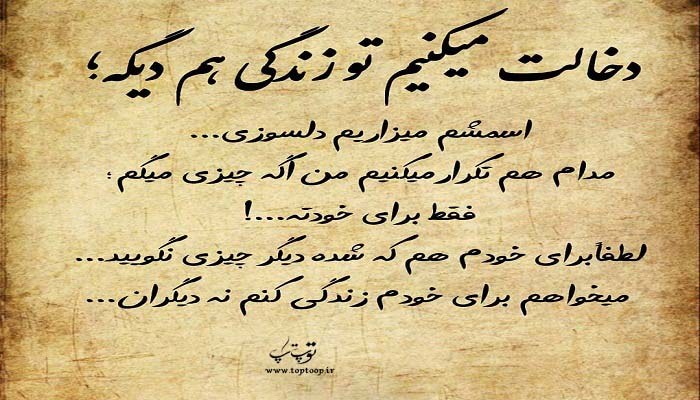 دخالت میکنیم تو زندگی هم دیگه؛
اسمشم میزاریم دلسوزی...
مدام هم تکرار میکنیم من اگه چیزی میگم؛
فقط برای خودته...!
لطفاًبرای خودم هم که شده دیگر چیزی نگویید...
میخواهم برای خودم زندگی کنم نه دیگران...
توپ تاپ
www.toptoop.ir